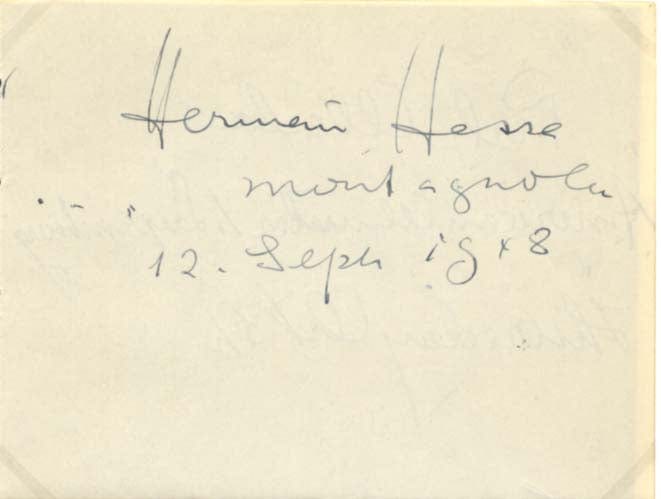 Hermann Hesse
Montagnola
12. Sept. 1948